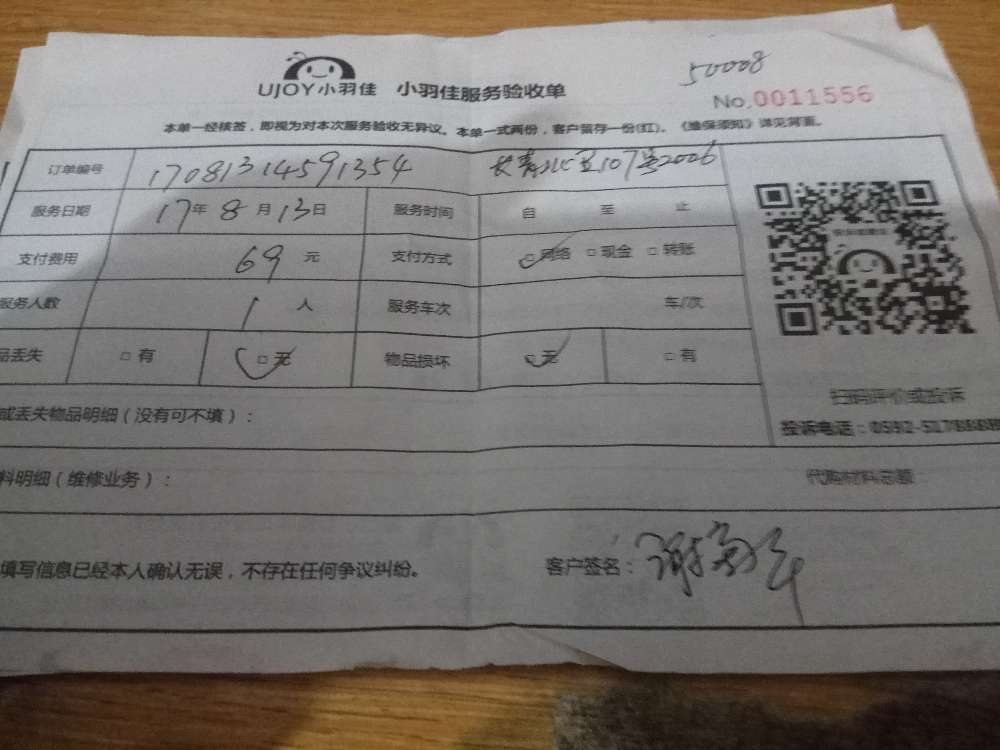 50008
UJOY小羽佳 小羽佳服务验收单
No.0011556
本单一经核签，即视为对本次服务验收无异议。本单一式两份，客户留存一份(红)。《维保须知》详见背面。
订单编号 17081314591354 长青北里107号2006
服务日期 17年8月13日 服务时间 自 至 止
支付费用 69 元 支付方式 □网络 □现金 □转账
服务人数 1 人 服务车次 车/次
品丢失 □有 □无 物品损坏 □无 □有
扫码评价或投诉
或丢失物品明细（没有可不填）：
投诉电话：0592-
料明细（维修业务）： 代购材料总额
填写信息已经本人确认无误，不存在任何争议纠纷。 客户签名：谢